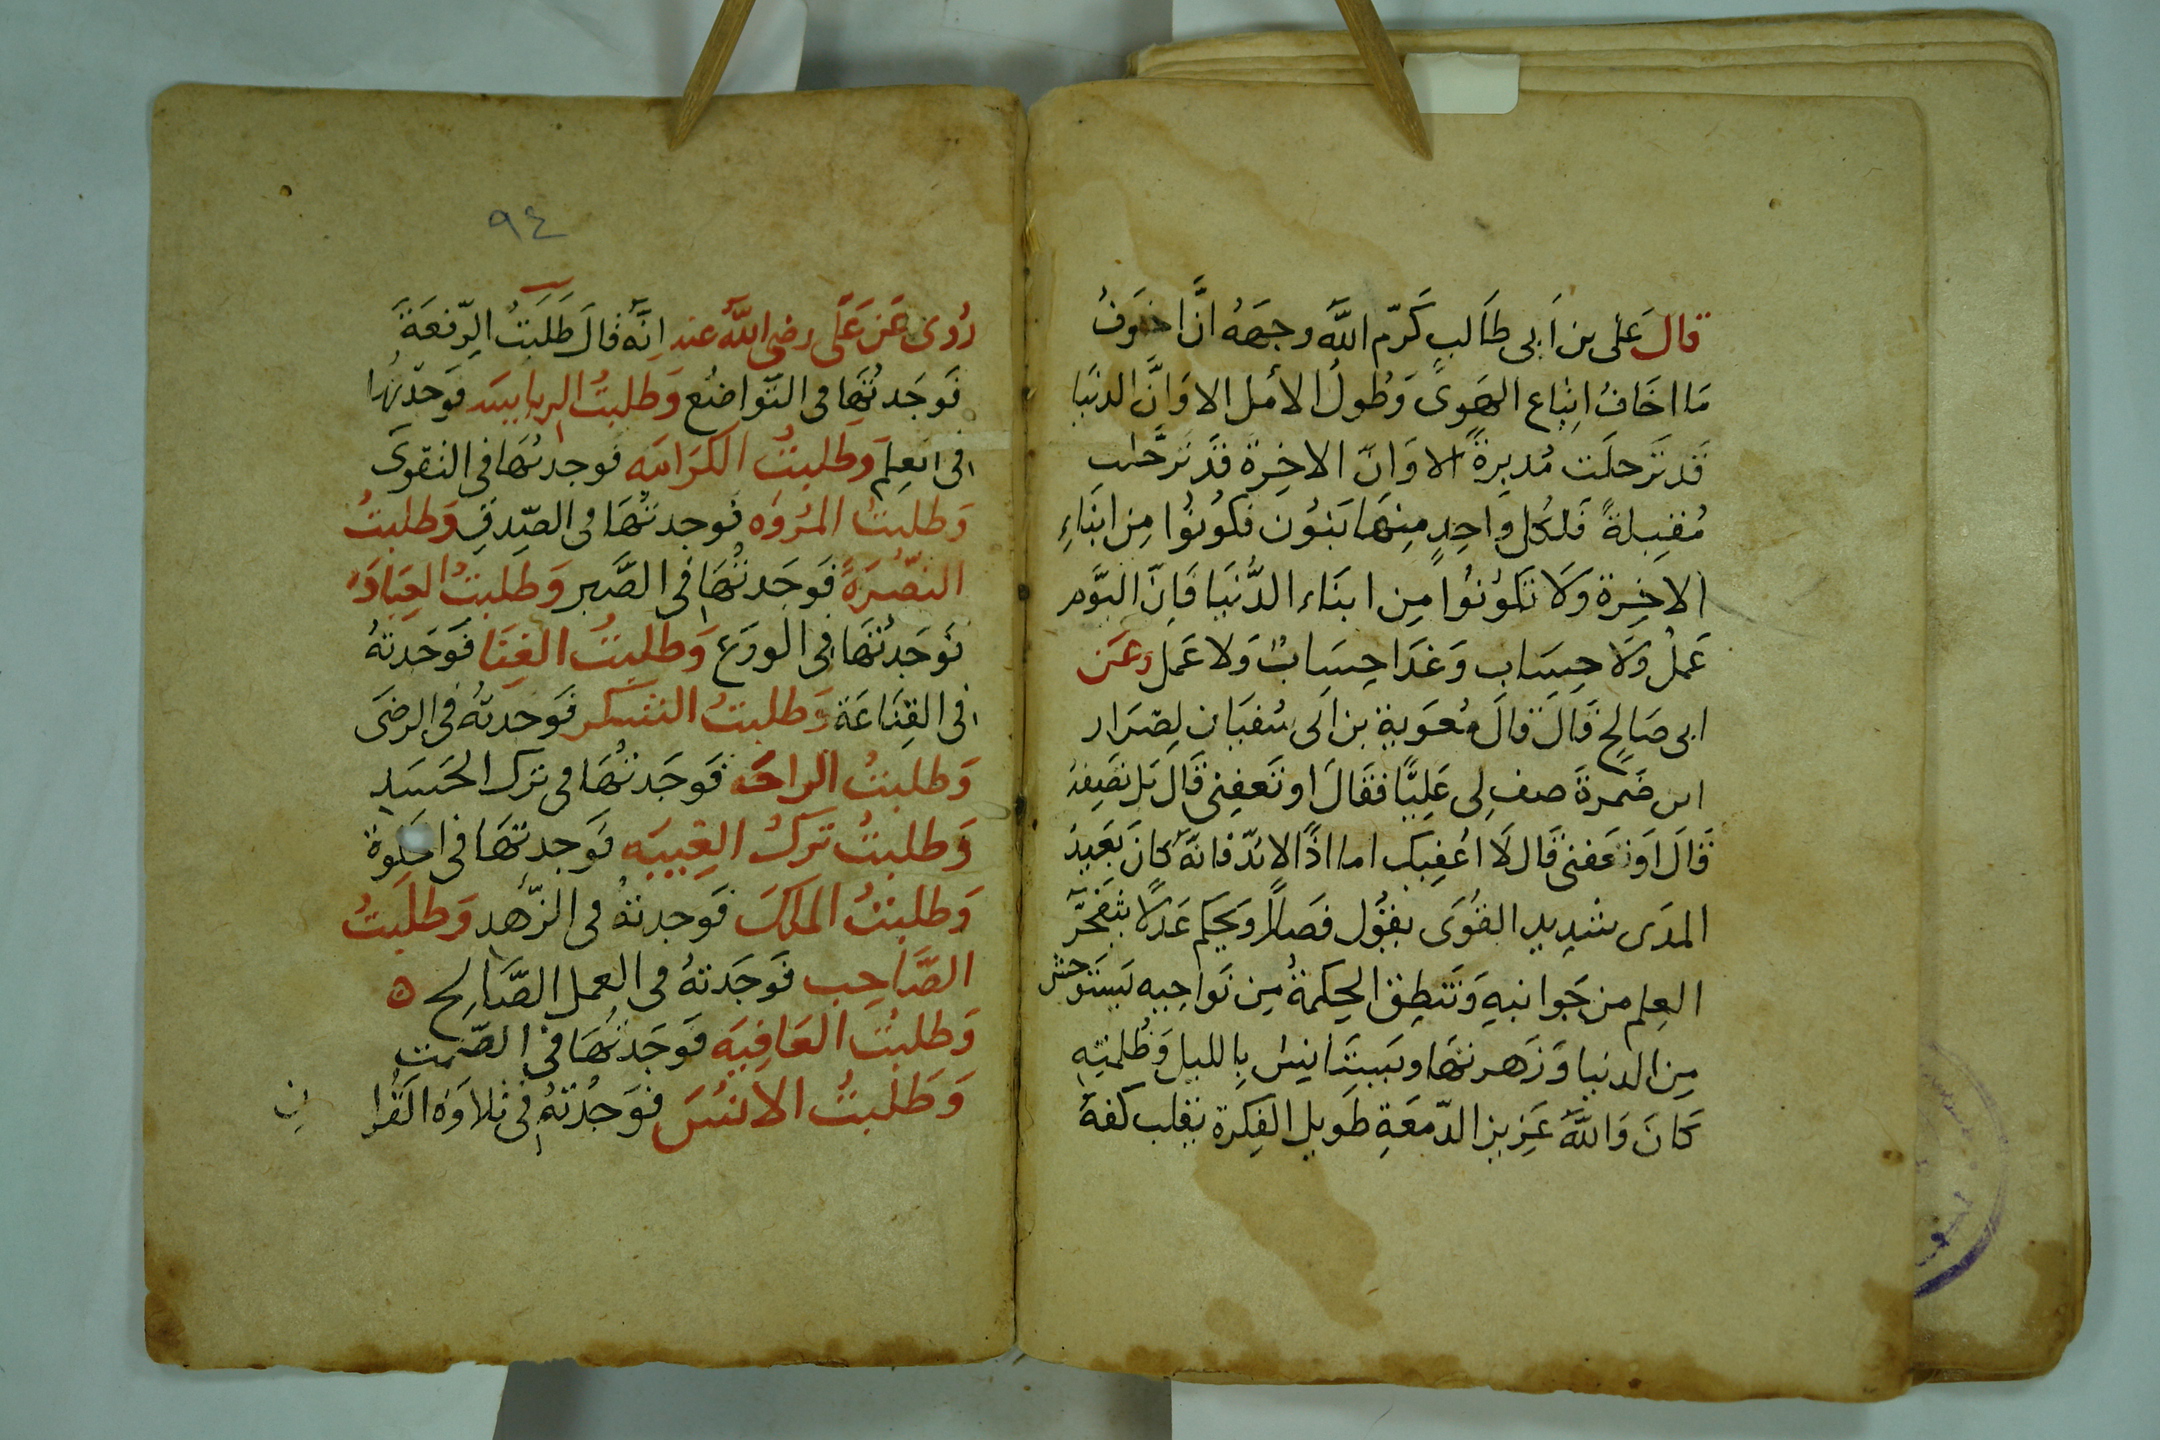 قال علي بن ابي طالب كرّم الله وجهه انّ اخوف
ما اخاف اتباع الهوى وطول الامل الا وانّ الدنيا
قد ترحلت مدبرة الا وانّ الاخرة قد ترحّلت
مقبلة فلكل واحد منها بنون فكونوا من ابناء
الاخرة ولا تكونوا من ابناء الدّنيا فانّ اليوم
عمل ولا حساب وغدا حساب ولا عمل وعن
ابي صالح قال قال معوية بن ابي سفيان لضرار
ابن ضمرة صف لي عليّا فقال او تعفني قال بل تصفه
قال او تعفني قال لا اعفيك اما اذا لا بدّ فانّه كان بعيد
المدى شديد القوى يقول فصلا ويحكم عدلا يتفجّر
العلم من جوانبه وتنطق الحكمة من نواحيه يستوحش
من الدنيا وزهرتها ويستانس بالليل وظلمته
كان والله عزيز الدّمعة طويل الفكرة يقلب كفه
٩٤
روى عن على رضى الله عنه انّه قال طلبت الرّفعة
فوجدتها في التّواضع وطلبت الرياسه فوجدتها
في العلم وطلبت الكرامه فوجدتها في التقوى
وطلبت المروه فوجدتها في الصّدق وطلبت
النّصرة فوجدتها في الصّبر وطلبت العباده
فوجدتها في الورع وطلبت الغنا فوجدته
في القناعة وطلبت الشكر فوجدته في الرضى
وطلبت الراحه فوجدتها في ترك الحسد
وطلبت ترك الغيبه فوجدتها في الخلوة
وطلبت الملك فوجدته في الزّهد وطلبت
الصّاحب فوجدته في العمل الصّالح ه
وطلبت العافيه فوجدتها في الصّمت
وطلبت الانس فوجدته في تلاوه القرا ن